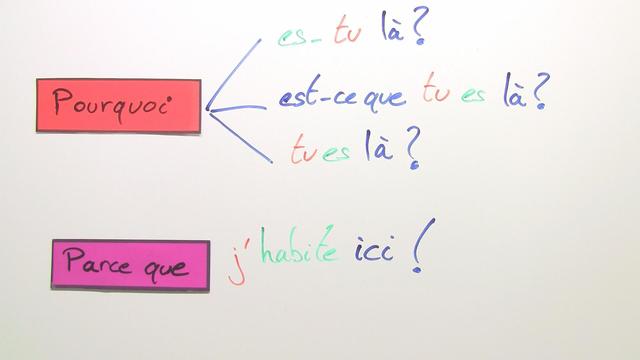 es-tu là?
Pourquoi est-ce que tu es là?
tu es là?
Parce que j'habite ici!